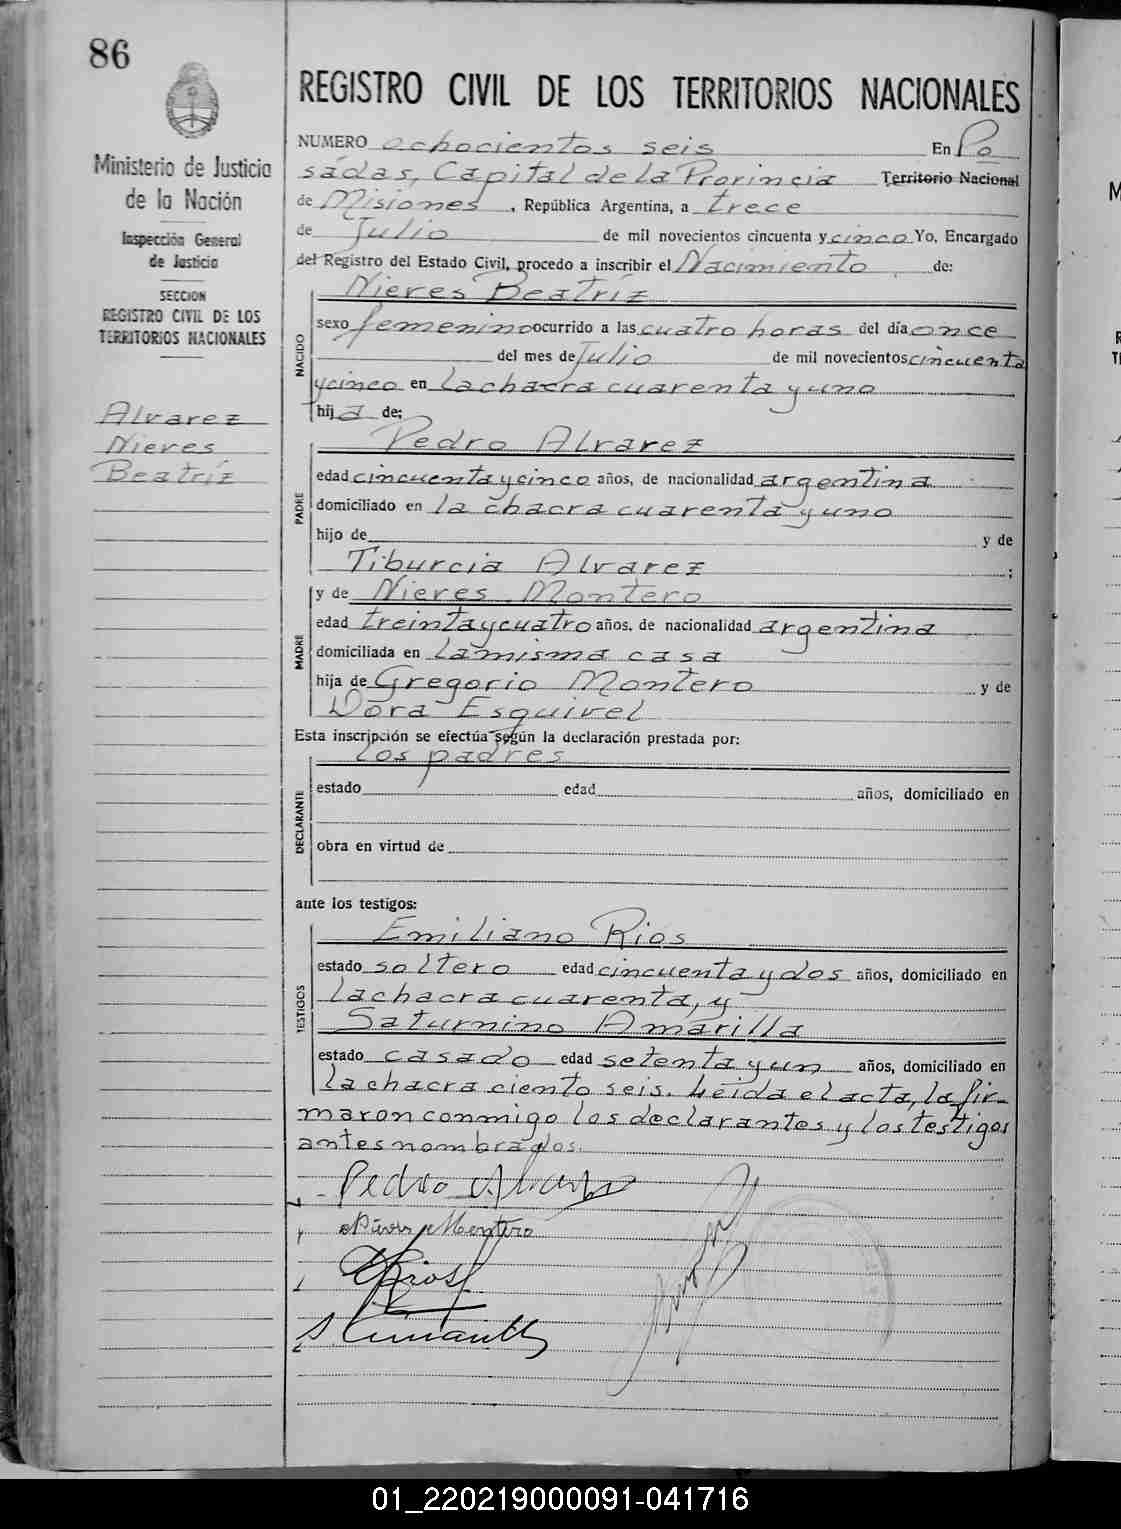 86
Ministerio de Justicia
de la Nación
Inspección General
de Justicia
SECCION
REGISTRO CIVIL DE LOS
TERRITORIOS NACIONALES
Alvarez
Nieves
Beatríz
REGISTRO CIVIL DE LOS TERRITORIOS NACIONALES
NUMERO ochocientos seis En Po
sádas, Capital de la Provincia Territorio Nacional
de Misiones, República Argentina, a trece
de Julio de mil novecientos cincuenta y cinco Yo, Encargado
del Registro del Estado Civil, procedo a inscribir el Nacimiento de:
Nieves Beatríz
NACIDO
sexo femenino ocurrido a las cuatro horas del día once
del mes de Julio de mil novecientos cincuenta
y cinco en la chacra cuarenta y uno
hija de:
Pedro Alvarez
PADRE
edad cincuenta y cinco años, de nacionalidad argentina
domiciliado en la chacra cuarenta y uno
hijo de y de
Tiburcia Alvarez ;
y de Nieves Montero
MADRE
edad treinta y cuatro años, de nacionalidad argentina
domiciliada en la misma casa
hija de Gregorio Montero y de
Dora Esquivel
Esta inscripción se efectúa según la declaración prestada por:
los padres
DECLARANTE
estado edad años, domiciliado en
obra en virtud de
ante los testigos:
Emiliano Rios
TESTIGOS
estado soltero edad cincuenta y dos años, domiciliado en
la chacra cuarenta, y
Saturnino Amarilla
estado casado edad setenta y un años, domiciliado en
la chacra ciento seis. Leida el acta, la fir-
maron conmigo los declarantes y los testigos
antes nombrados.
Pedro Alvarez
Nieves Montero
ERios
S Amarilla
M
01_220219000091-041716